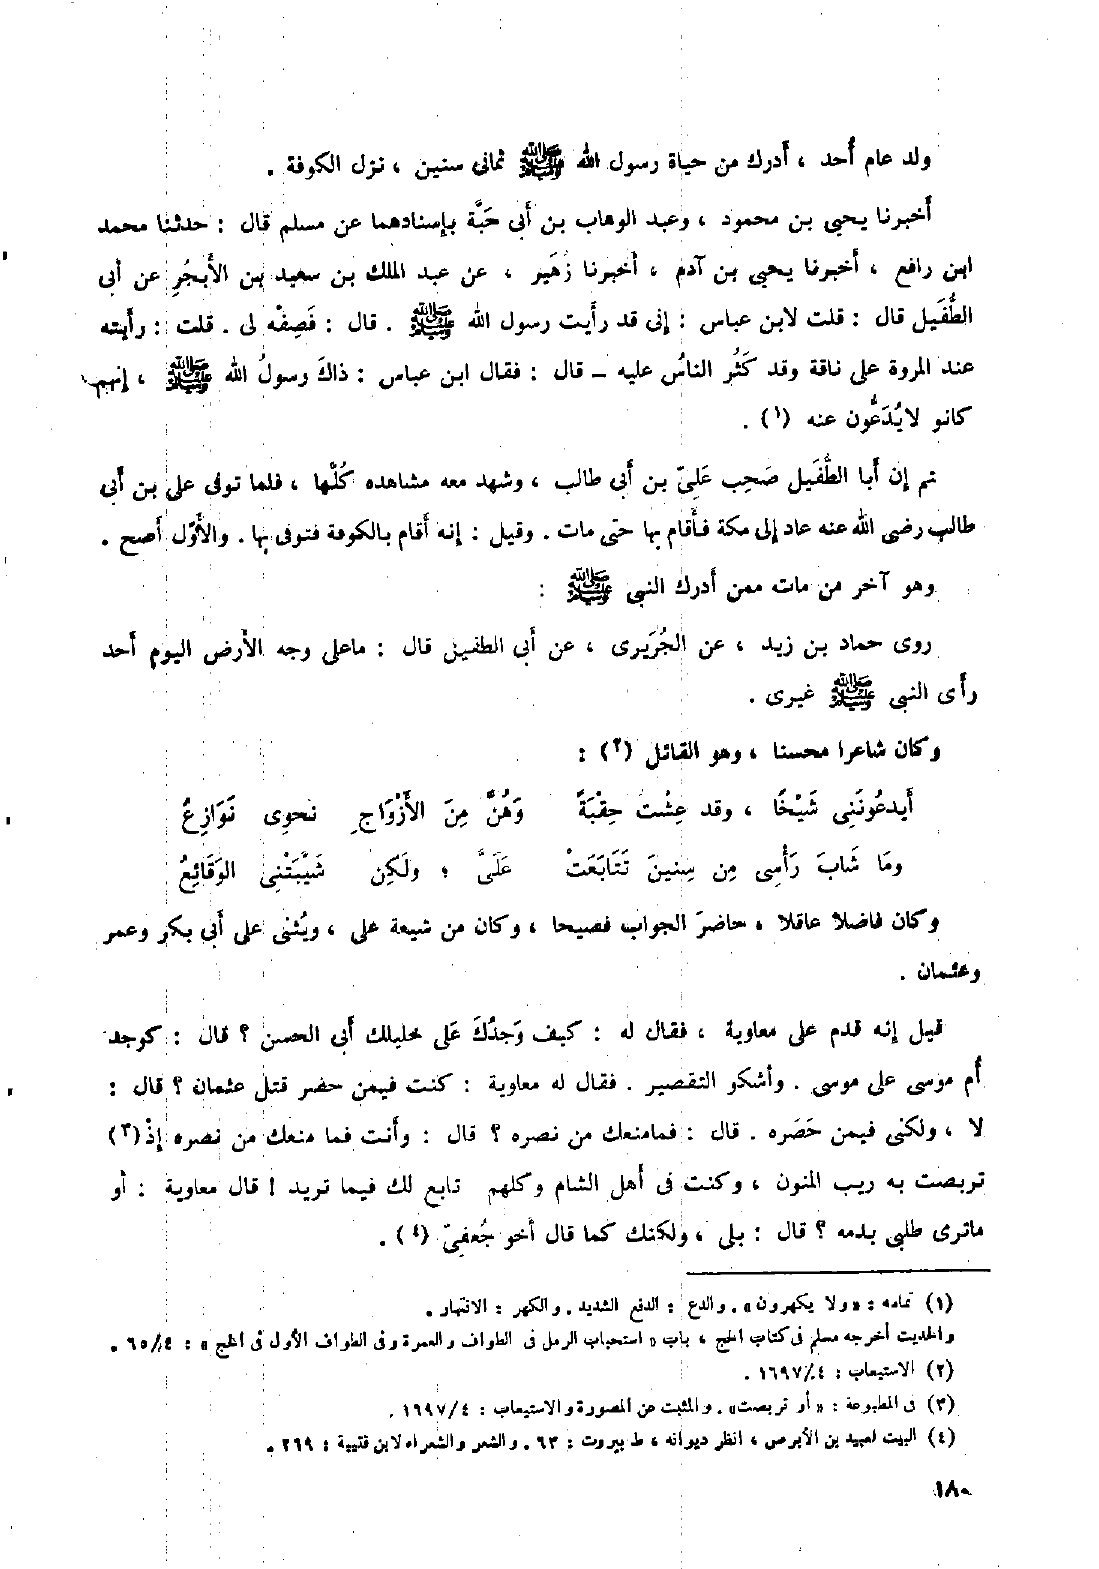 ولد عام أُحد ، أَدرك من حياة رسول الله ﷺ ثمانى سنين ، نزل الكوفة .
أَخبرنا يحيى بن محمود ، وعبد الوهاب بن أَبى حَبَّة بإسنادهما عن مسلم قال : حدثنا محمد
ابن رافع ، أَخبرنا يحيى بن آدم ، أَخبرنا زُهَير ، عن عبد الملك بن سعيد بن الأَبجُرِ عن أَبى
الطُّفَيل قال : قلت لابن عباس : إنى قد رأَيت رسول الله ﷺ . قال : فَصِفْه لى . قلت : رأَيته
عند المروة على ناقة وقد كَثُر الناسُ عليه – قال : فقال ابن عباس : ذاكَ رسولُ الله ﷺ ، إنهم
كانو لايُدَعُّون عنه (١) .
ثم إن أَبا الطُّفَيل صَحِب عَلِىّ بن أَبى طالب ، وشهد معه مشاهده كُلَّها ، فلما توفى على بن أَبى
طالب رضى الله عنه عاد إلى مكة فأَقام بها حتى مات . وقيل : إنه أَقام بالكوفة فتوفى بها . والأَوّل أَصح .
وهو آخر من مات ممن أَدرك النبى ﷺ :
روى حماد بن زيد ، عن الجُرَيرى ، عن أَبى الطفيل قال : ماعلى وجه الأَرض اليوم أَحد
رأَى النبى ﷺ غيرى .
وكان شاعرا محسنا ، وهو القائل (٢) :
أَيدعُونَنِى شَيْخًا ، وقد عِشْت حِقْبَةً وَهُنَّ مِنَ الأَزْوَاجِ نحوِى نَوَازِعُ
ومَا شَابَ رَأْسِى مِن سِنِينَ تَتَابَعَتْ عَلَىَّ ؛ ولَكِن شَيَّبَتْنِى الوَقَائِعُ
وكان فاضلا عاقلا ، حاضرَ الجواب فصيحا ، وكان من شيعة على ، ويُثنى على أَبى بكر وعمر
وعثمان .
قيل إنه قدم على معاوية ، فقال له : كيف وَجدُكَ عَلى خليلك أَبى الحسن ؟ قال : كوجد
أُم موسى على موسى . وأشكو التقصير . فقال له معاوية : كنت فيمن حضر قتل عثمان ؟ قال :
لا ، ولكنى فيمن حَصَره . قال : فمامنعك من نصره ؟ قال : وأَنت فما منعك من نصره إذْ(٣)
تربصت به ريب المنون ، وكنت فى أَهل الشام وكلهم تابع لك فيما تريد ! قال معاوية : أَو
ماترى طلبى بدمه ؟ قال : بلى ، ولكنك كما قال أَخو جُعفىّ (٤) .
(١) تمامه : «ولا يكهرون» . والدع : الدفع الشديد . والكهر : الانتهار .
والحديث أخرجه مسلم فى كتاب الحج ، باب « استحباب الرمل فى الطواف والعمرة وفى الطواف الأول فى الحج » : ٦٥/٤ .
(٢) الاستيعاب : ١٦٩٧/٤ .
(٣) فى المطبوعة : « أو تربصت» . والمثبت عن المصورة والاستيعاب : ١٦٩٧/٤ .
(٤) البيت لعبيد بن الأبرص ، انظر ديوانه ، ط بيروت : ٦٣ . والشعر والشعراء لابن قتيبة : ٢٦٩ .
١٨٠